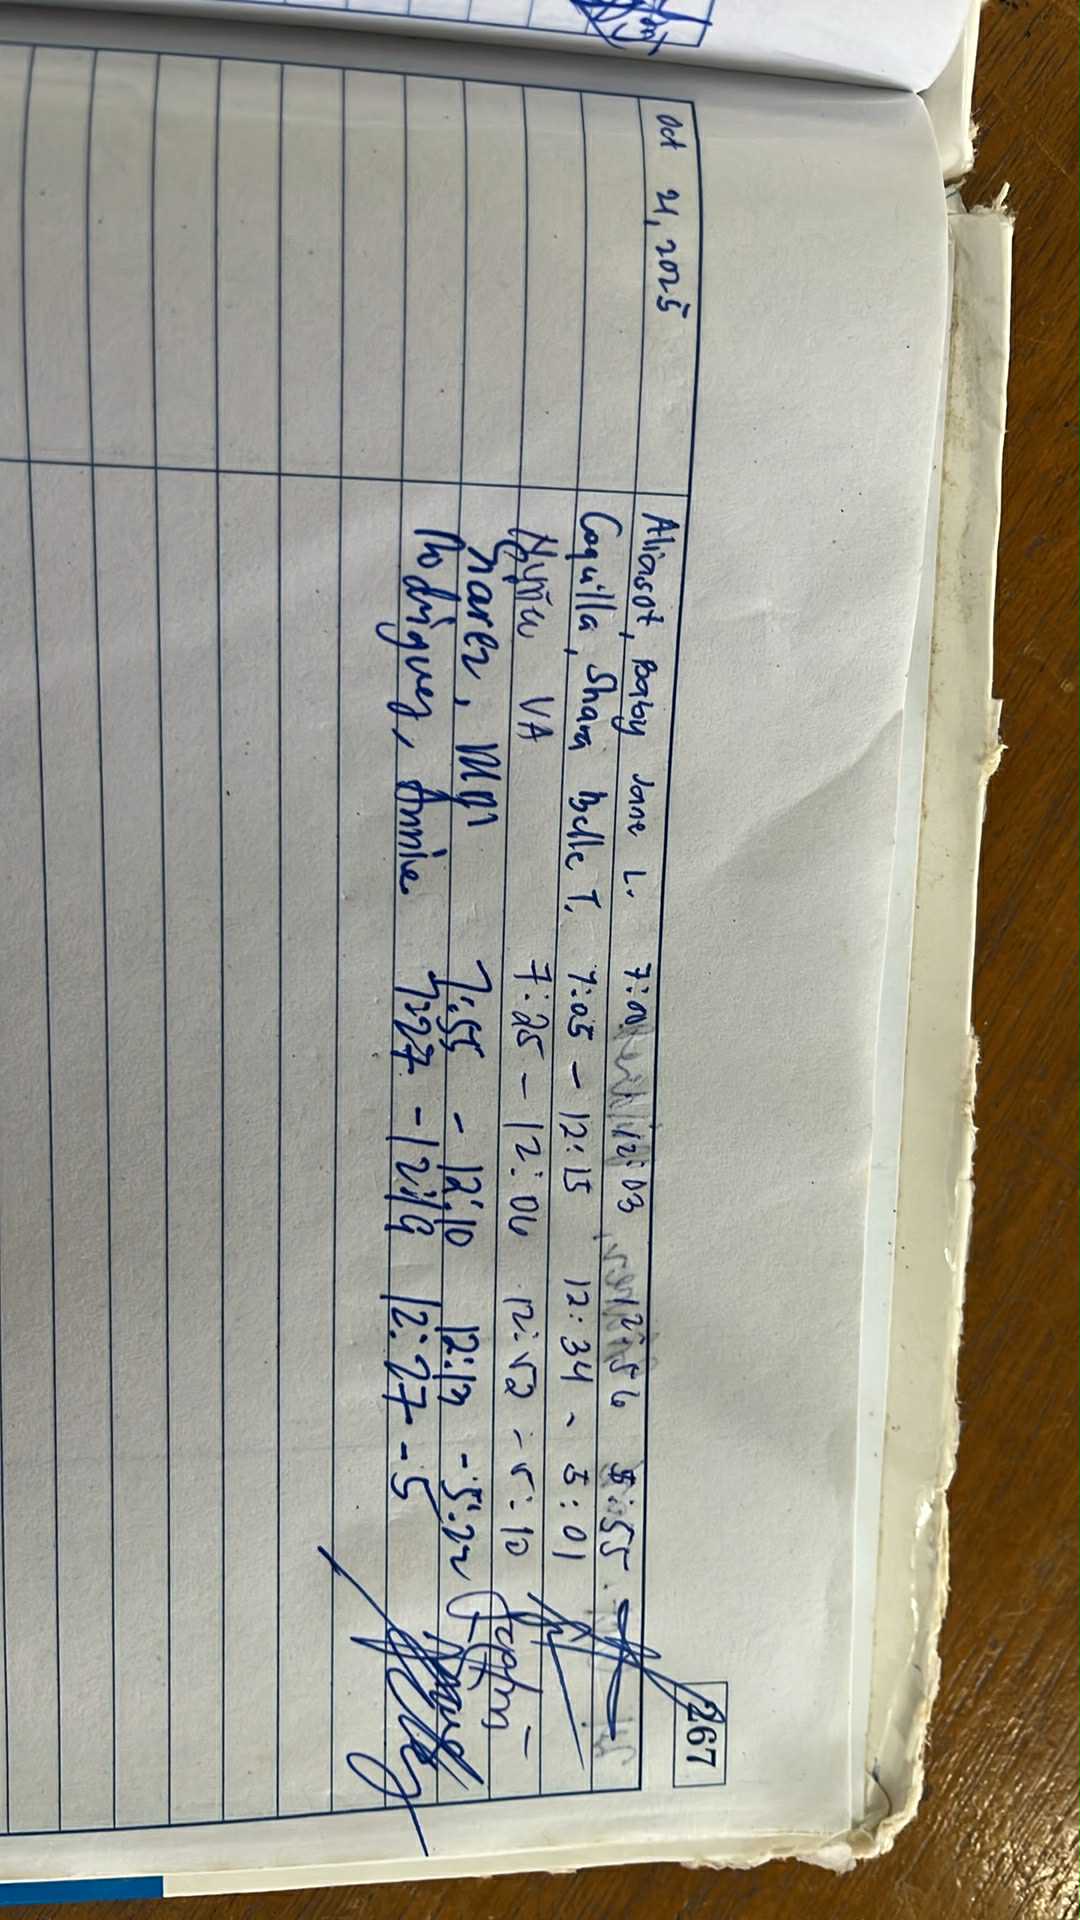 267
Oct 21, 2025 Aliasot, Baby Jane L. 12:03 12:56 5:55
Coquilla, Shara Belle T. 7:05 - 12:15 12:34 - 5:01
VA 7:25 - 12:06 12:52 - 5:10
MM 7:55 - 12:10 12:13 - 5:22
Rodriguez, Annie 7:27 - 12:19 12:27 - 5